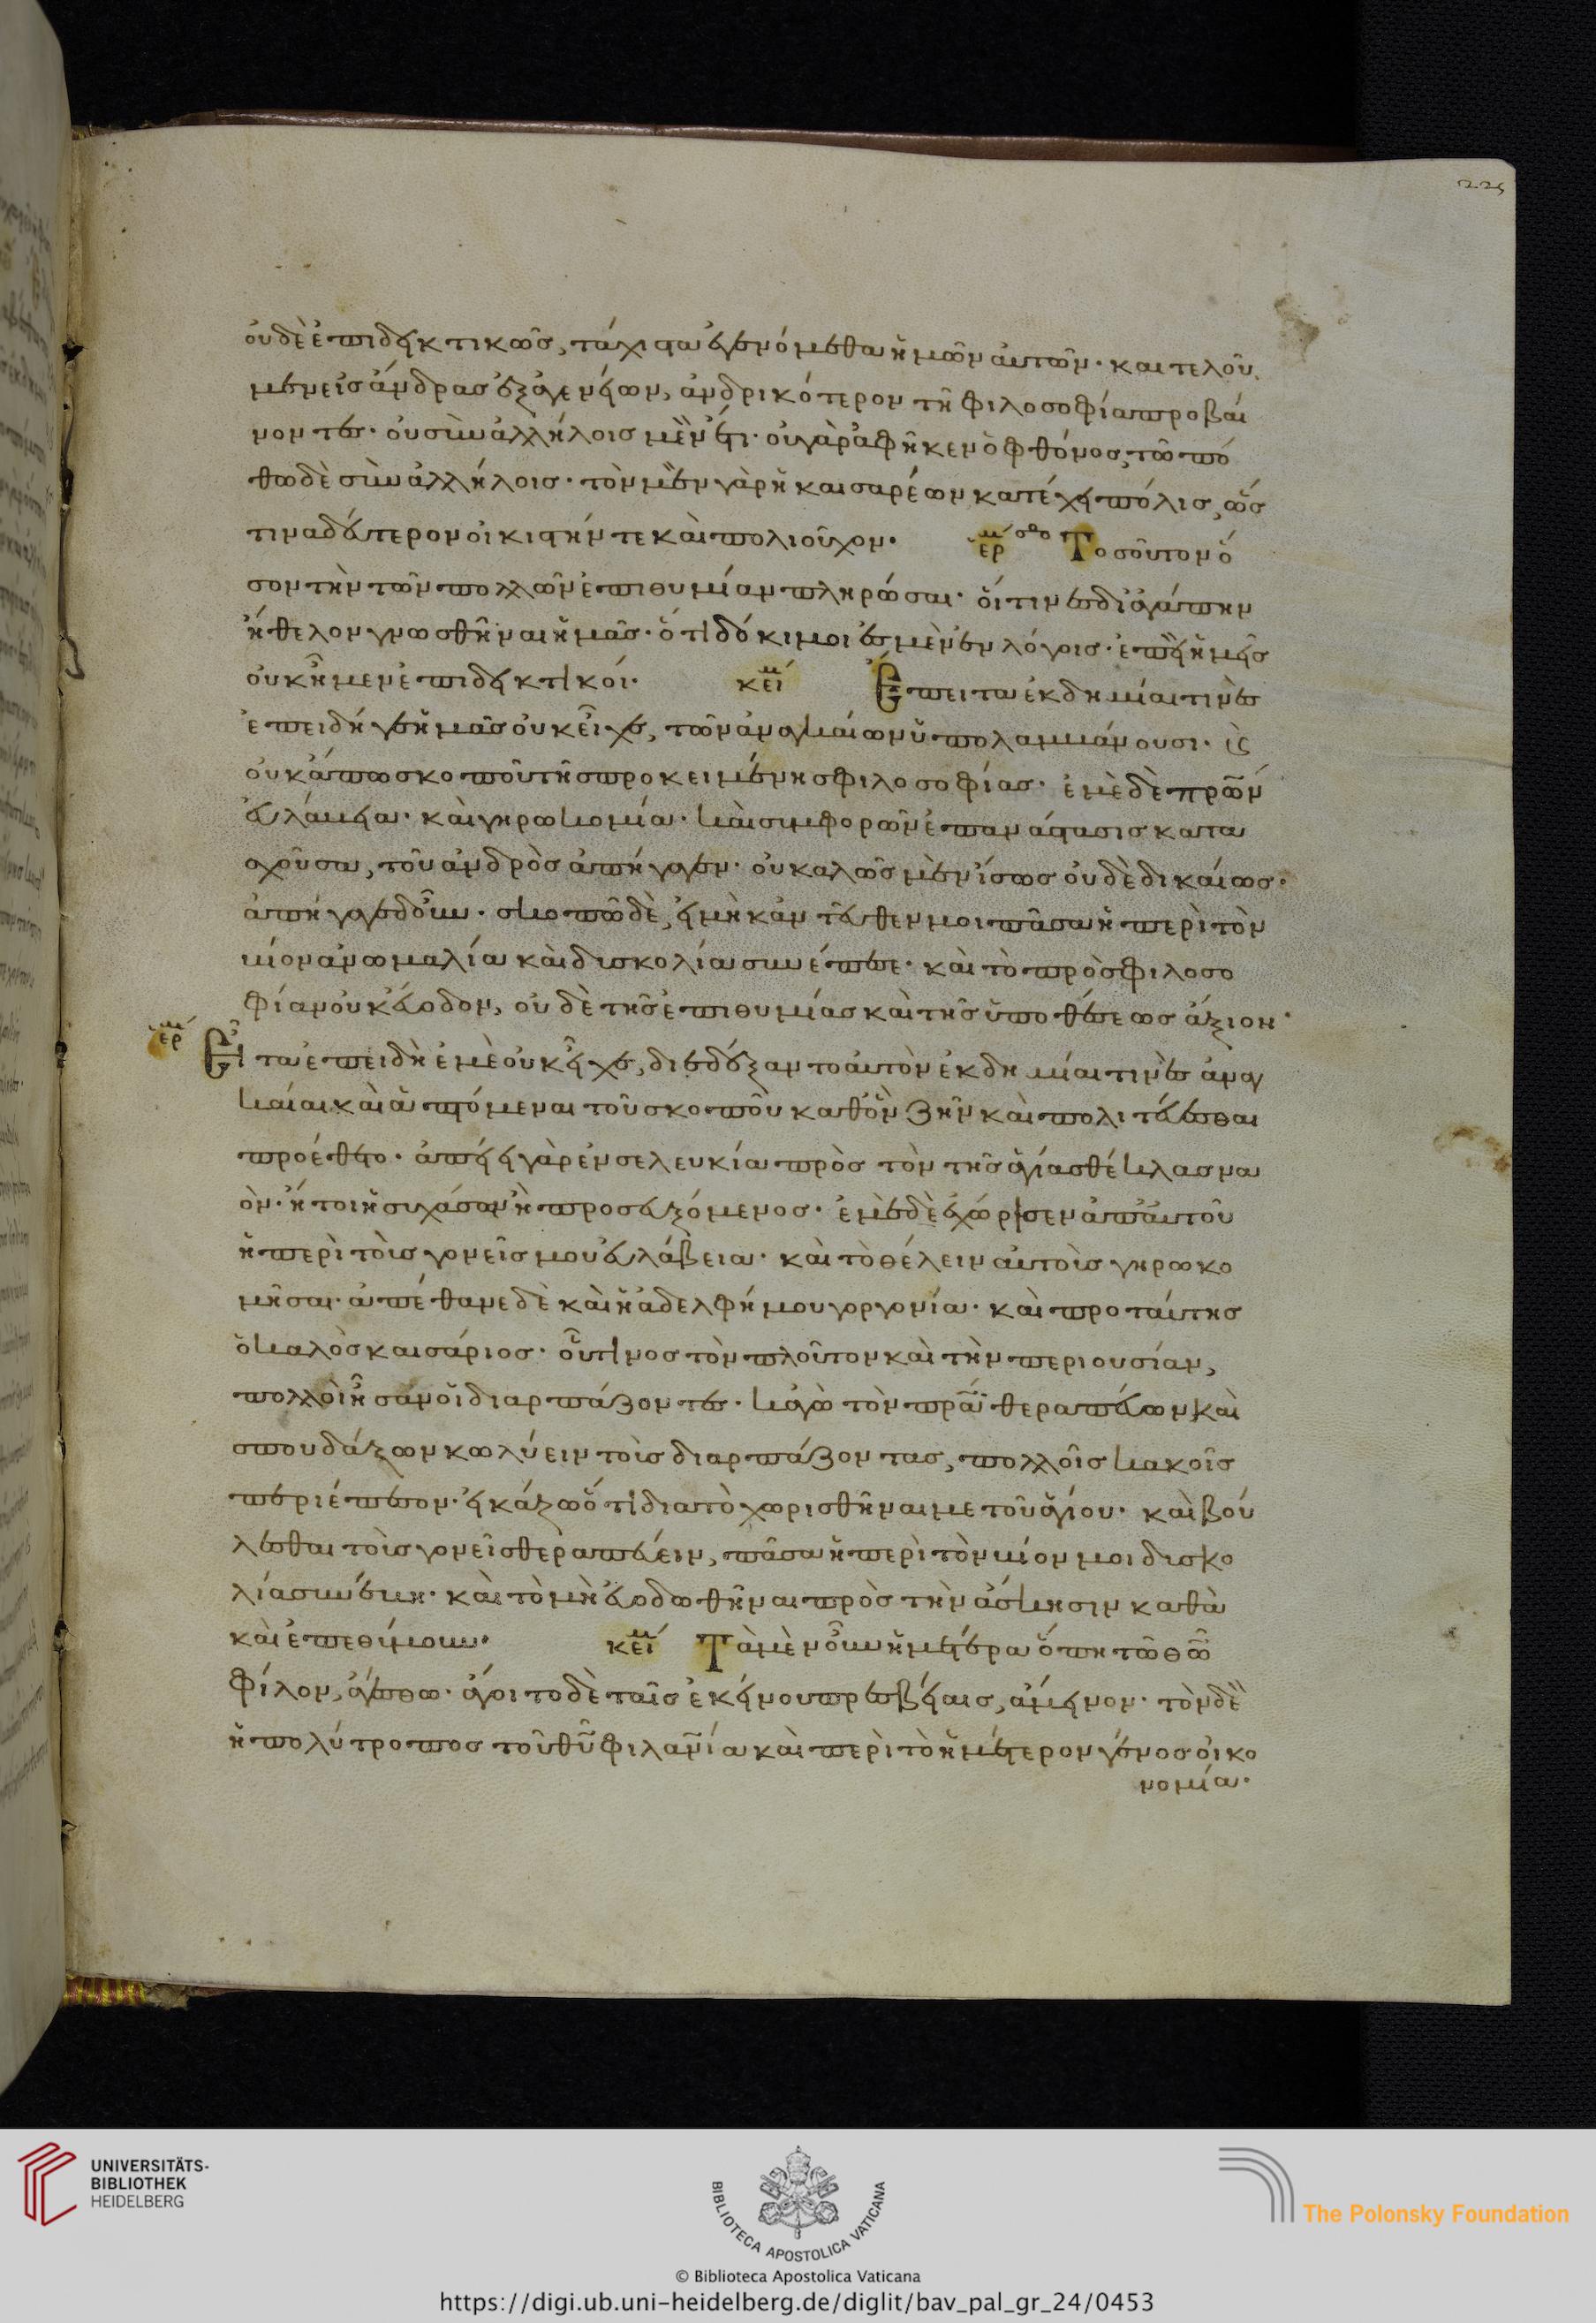 225
οὐδὲ ἐπιδεικτικῶς, τάχιστα ἐγενόμεθα ἡμῶν αὐτῶν· καὶ τελοῦ
μεν εἰς ἄνδρας ἐξ ἀγενείων, ἀνδρικότερον τῇ φιλοσοφία προβαί
νοντες· οὐ σὺν ἀλλήλοις μὲν ἔτι· οὐ γὰρ ἀφῆκεν ὁ φθόνος, τῶ πό
θω δὲ σὺν ἀλλήλοις· τὸν μὲν γὰρ ἡ καισαρέων κατέχει πόλις, ὥς
τινα δεύτερον οἰκιστήν τε καὶ πολιοῦχον· ἑρμ Τοσοῦτον ὅ
σον τὴν τῶν πολλῶν ἐπιθυμίαν πληρῶσαι· οἵτινες δι' ἀγάπην
ἤθελον γνωσθῆναι ἡμᾶς· ὅτι δόκιμοι ἐσμὲν ἐν λόγοις· ἐπεὶ ἡμεῖς
οὐκ ἦμεν ἐπιδεικτικοί· κείμ Ἔπειτα ἐκδημίαι τινὲς
ἐπειδή γε ἡμᾶς οὐκ εἶχε, τῶν ἀναγκαίων ὑπολαμβάνουσι· κ
οὐκ ἄπω σκοποῦ τῆς προκειμένης φιλοσοφίας· ἐμὲ δὲ πρων
εὐλάβεια· καὶ γηροκομία· καὶ συμφορῶν ἐπανάστασις κατα
σχοῦσα, τοῦ ἀνδρὸς ἀπήγαγεν· οὐ καλῶς μὲν ἴσως οὐδὲ δικαίως·
ἀπήγαγε δ' οὖν· σκοπῶ δὲ, εἰ μὴ κἀντεῦθεν μοι πᾶσα ἡ περὶ τὸν
βίον ἀνωμαλία καὶ δυσκολία συνέπεσε· καὶ τὸ πρὸς φιλοσο
φίαν οὐκ εὔοδον, οὐδὲ τῆς ἐπιθυμίας καὶ τῆς ὑποθέσεως ἄξιον·
ἑρμ Εἶτα ἐπειδὴ ἐμὲ οὐκ εἶχε, διεδέξαντο αὐτὸν ἐκδημίαι τινὲς ἀναγ
καῖαι καὶ ἁπτόμεναι τοῦ σκοποῦ καθ' ὃν ζῆν καὶ πολιτεύεσθαι
προέθετο· ἀπῄει γὰρ ἐν σελευκία πρὸς τὸν τῆς ἁγίας θέκλας να
όν· ἤτοι ἡσυχάσων ἢ προσευξόμενος· ἐμὲ δὲ ἐχώρισεν ἀπ' αὐτοῦ
ἡ περὶ τοὺς γονεῖς μου εὐλάβεια· καὶ τὸ θέλειν αὐτοὺς γηρωκο
μῆσαι· ἀπέθανε δὲ καὶ ἡ ἀδελφή μου γοργονία· καὶ προ ταύτης
ὁ καλὸς καισάριος· οὗτινος τὸν πλοῦτον καὶ τὴν περιουσίαν,
πολλοὶ ἦσαν οἱ διαρπάζοντες· κἀγὼ τὸν πρα θεραπεύων καὶ
σπουδάζων κωλύειν τοὺς διαρπάζοντας, πολλοῖς κακοῖς
περιέπεσον· εἰκάζω ὅτι διὰ τὸ χωρισθῆναι με τοῦ ἁγίου· καὶ βού
λεσθαι τοὺς γονεῖς θεραπεύειν, πᾶσα ἡ περὶ τὸν βίον μοι δυσκο
λία συνέβη· καὶ τὸ μὴ εὐοδωθῆναι πρὸς τὴν ἄσκησιν καθὰ
καὶ ἐπεθύμουν· κείμ Τὰ μὲν οὖν ἡμέτερα ὅπη τῶ θῶ
φίλον, ἀγέσθω· ἄγοιτο δὲ ταῖς ἐκείνου πρεσβείαις, ἄμεινον· τὸν δὲ
ἡ πολύτροπος τοῦ θῦ φιλανία καὶ περὶ τὸ ἡμέτερον γένος οἰκο
νομία·
UNIVERSITÄTS-
BIBLIOTHEK
HEIDELBERG
BIBLIOTECA APOSTOLICA VATICANA
The Polonsky Foundation
© Biblioteca Apostolica Vaticana
https://digi.ub.uni-heidelberg.de/diglit/bav_pal_gr_24/0453